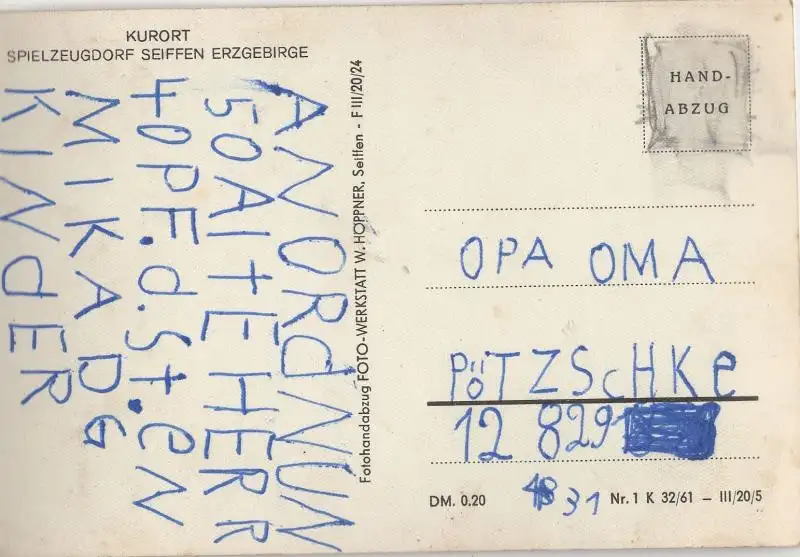 KURORT
SPIELZEUGDORF SEIFFEN ERZGEBIRGE
ANORdNUN
50 AltEHERR
40 PF. d. St. eN
MIKADG
KINdER
Fotohandabzug FOTO-WERKSTATT W. HÖPPNER, Seiffen - F III/20/24
HAND-
ABZUG
OPA OMA
PöTZScHKe
12 829
DM. 0.20
31
Nr. 1 K 32/61 — III/20/5